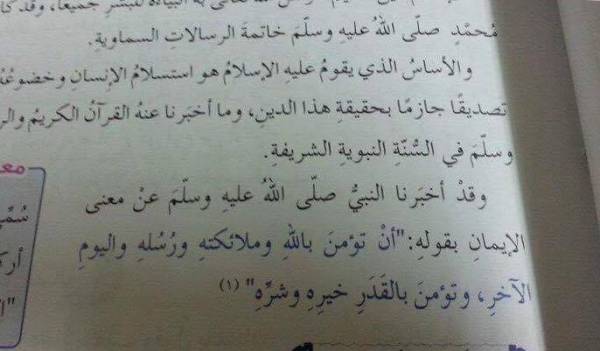 به البيانة للبشرِ جميعًا، وقد كا
مُحمَّدٍ صلّى اللهُ عليهِ وسلّمَ خاتمةَ الرسالاتِ السماويةِ.
والأساسُ الذي يقومُ عليهِ الإسلامُ هو استسلامُ الإنسانِ وخضوعُهُ
تصديقًا جازمًا بحقيقةِ هذا الدينِ، وما أخبَرنا عنهُ القرآنُ الكريمُ والر
وسلّمَ في السُّنّةِ النبويةِ الشريفةِ.
وقدْ أخبَرنا النبيُّ صلّى اللهُ عليهِ وسلّمَ عنْ معنى
الإيمانِ بقولهِ: "أنْ تؤمنَ باللهِ وملائكتهِ ورُسُلهِ واليومِ
الآخرِ، وتؤمنَ بالقَدَرِ خيرِهِ وشرِّهِ" (١)
معـ
سُمِّيـ
أركـ
"ا